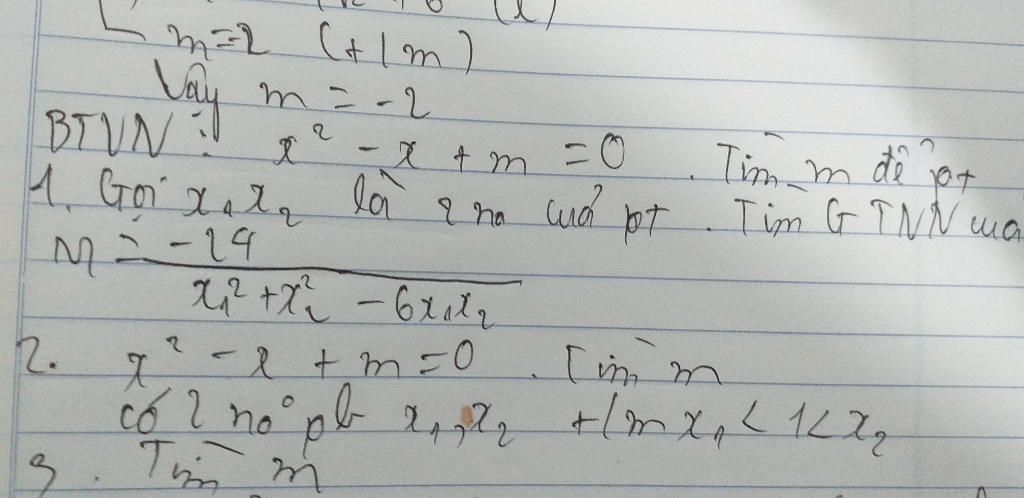 m=2 (t/m)
Vậy m = -2
BTVN: x² - x + m = 0 . Tìm m để pt
1. Gọi x₁ x₂ là 2 no của pt . Tìm GTNN của
M = -24 / (x₁² + x₂² - 6x₁x₂)
2. x² - x + m = 0 . Tìm m
có 2 no° pb x₁, x₂ t/m x₁ < 1 < x₂
3. Tìm m